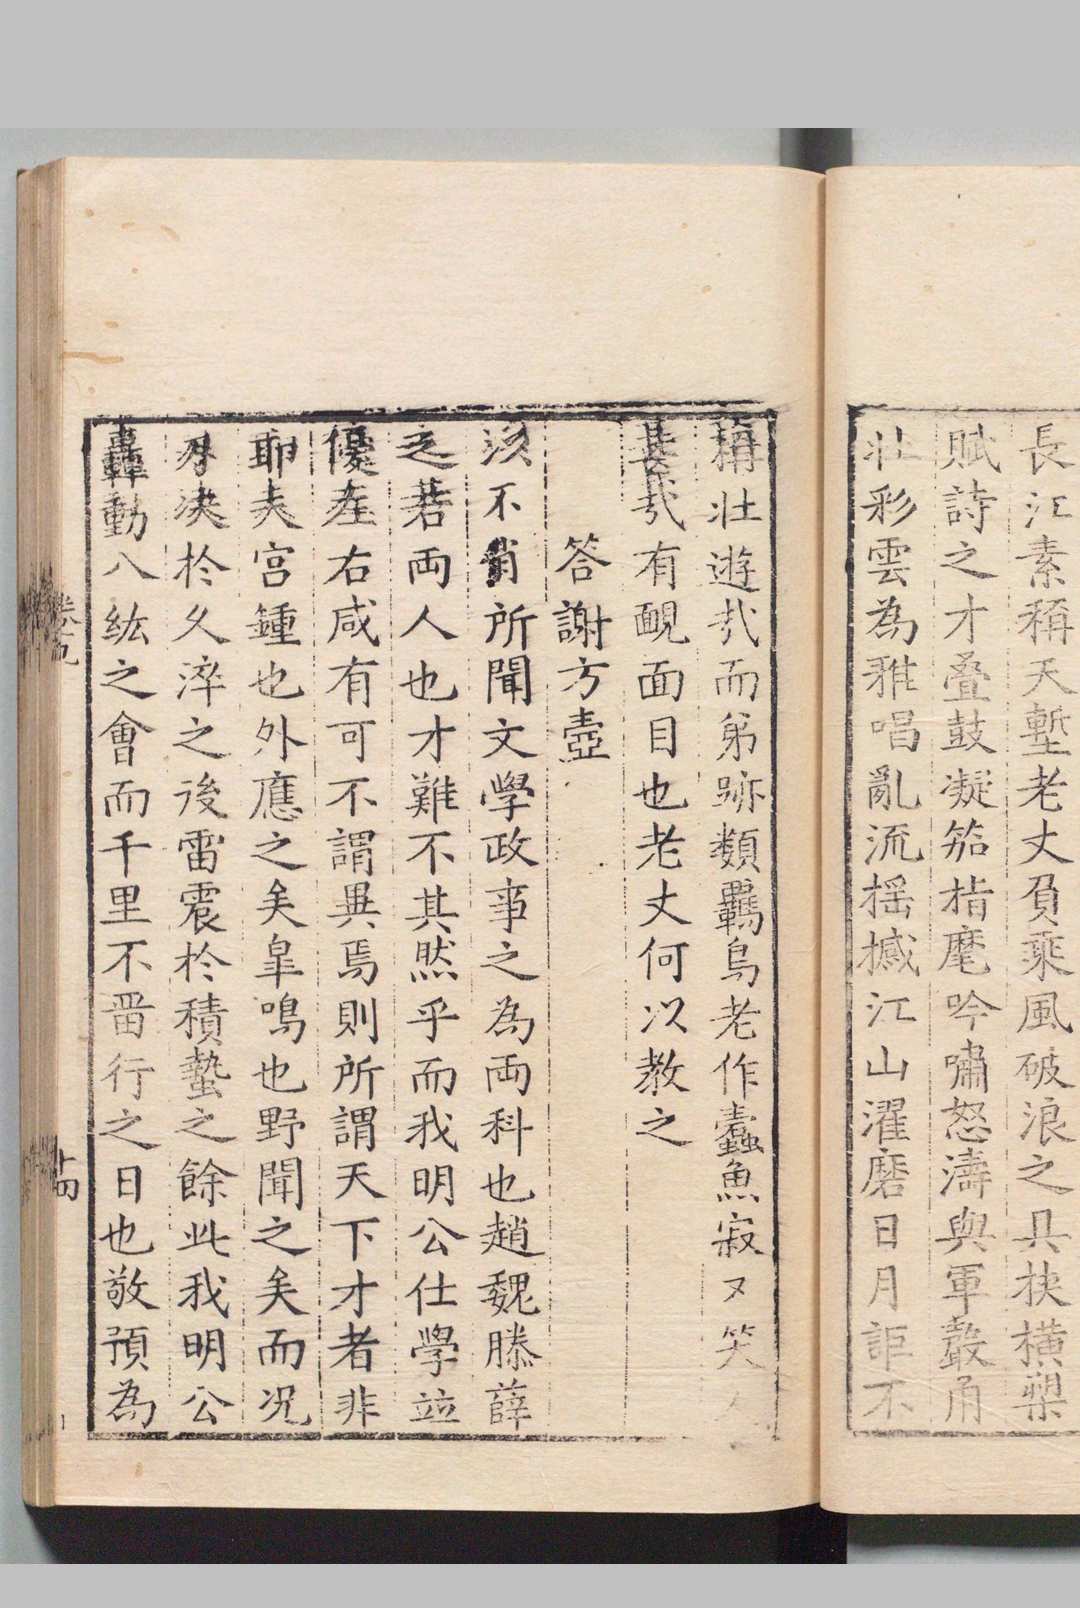 長江素稱天塹老丈負乘風破浪之具挾橫槊
賦詩之才疊鼓凝笳指麾吟嘯怒濤與軍聲甬
壯彩雲為雅唱亂流搖撼江山濯磨日月詎不
稱壯遊哉而弟跡類羈鳥老作蠹魚寂又笑人
甚哉有靦面目也老丈何以教之
答謝方壺
淡不肖所聞文學政事之為両科也趙魏滕薛
之若両人也才難不其然乎而我明公仕學並
優左右咸有可不謂異焉則所謂天下才者非
耶夫宮鍾也外應之矣皐鳴也野聞之矣而况
刃決於久淬之後雷震於積蟄之餘此我明公
轟動八紘之會而千里不畱行之日也敬預為
卷九
十四